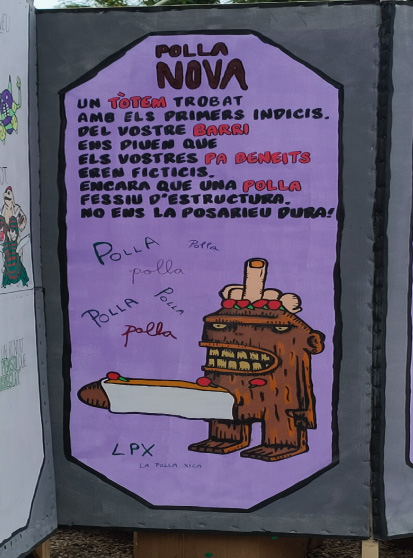 POLLA
NOVA
UN TÒTEM TROBAT
AMB ELS PRIMERS INDICIS.
DEL VOSTRE BARRI
ENS DIUEN QUE
ELS VOSTRES PA BENEITS
EREN FICTICIS.
ENCARA QUE UNA POLLA
FESSIU D'ESTRUCTURA.
NO ENS LA POSARIEU DURA!
POLLA
Polla
polla
POLLA
POLLA
polla
LPX
LA POLLA XICA